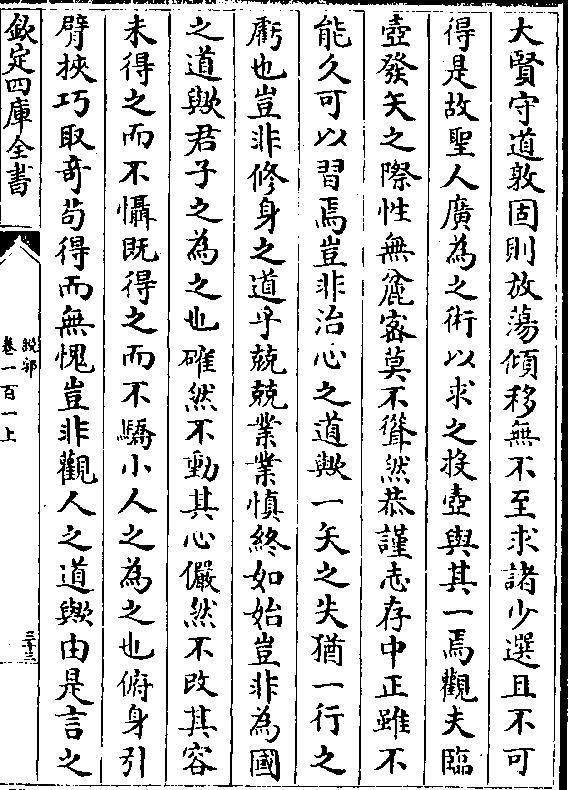 大賢守道敦固則放蕩傾移無不至求諸少選且不可
得是故聖人廣為之術以求之投壺與其一焉觀夫臨
壺發矢之際性無麄宻莫不聳然恭謹志存中正雖不
能久可以習焉豈非治心之道歟一矢之失猶一行之
虧也豈非修身之道乎兢兢業業慎終如始豈非為國
之道歟君子之為之也確然不動其心儼然不改其容
未得之而不懾既得之而不驕小人之為之也俯身引
臂挾巧取奇苟得而無愧豈非觀人之道歟由是言之
欽定四庫全書
說郛
卷一百一上
三十三